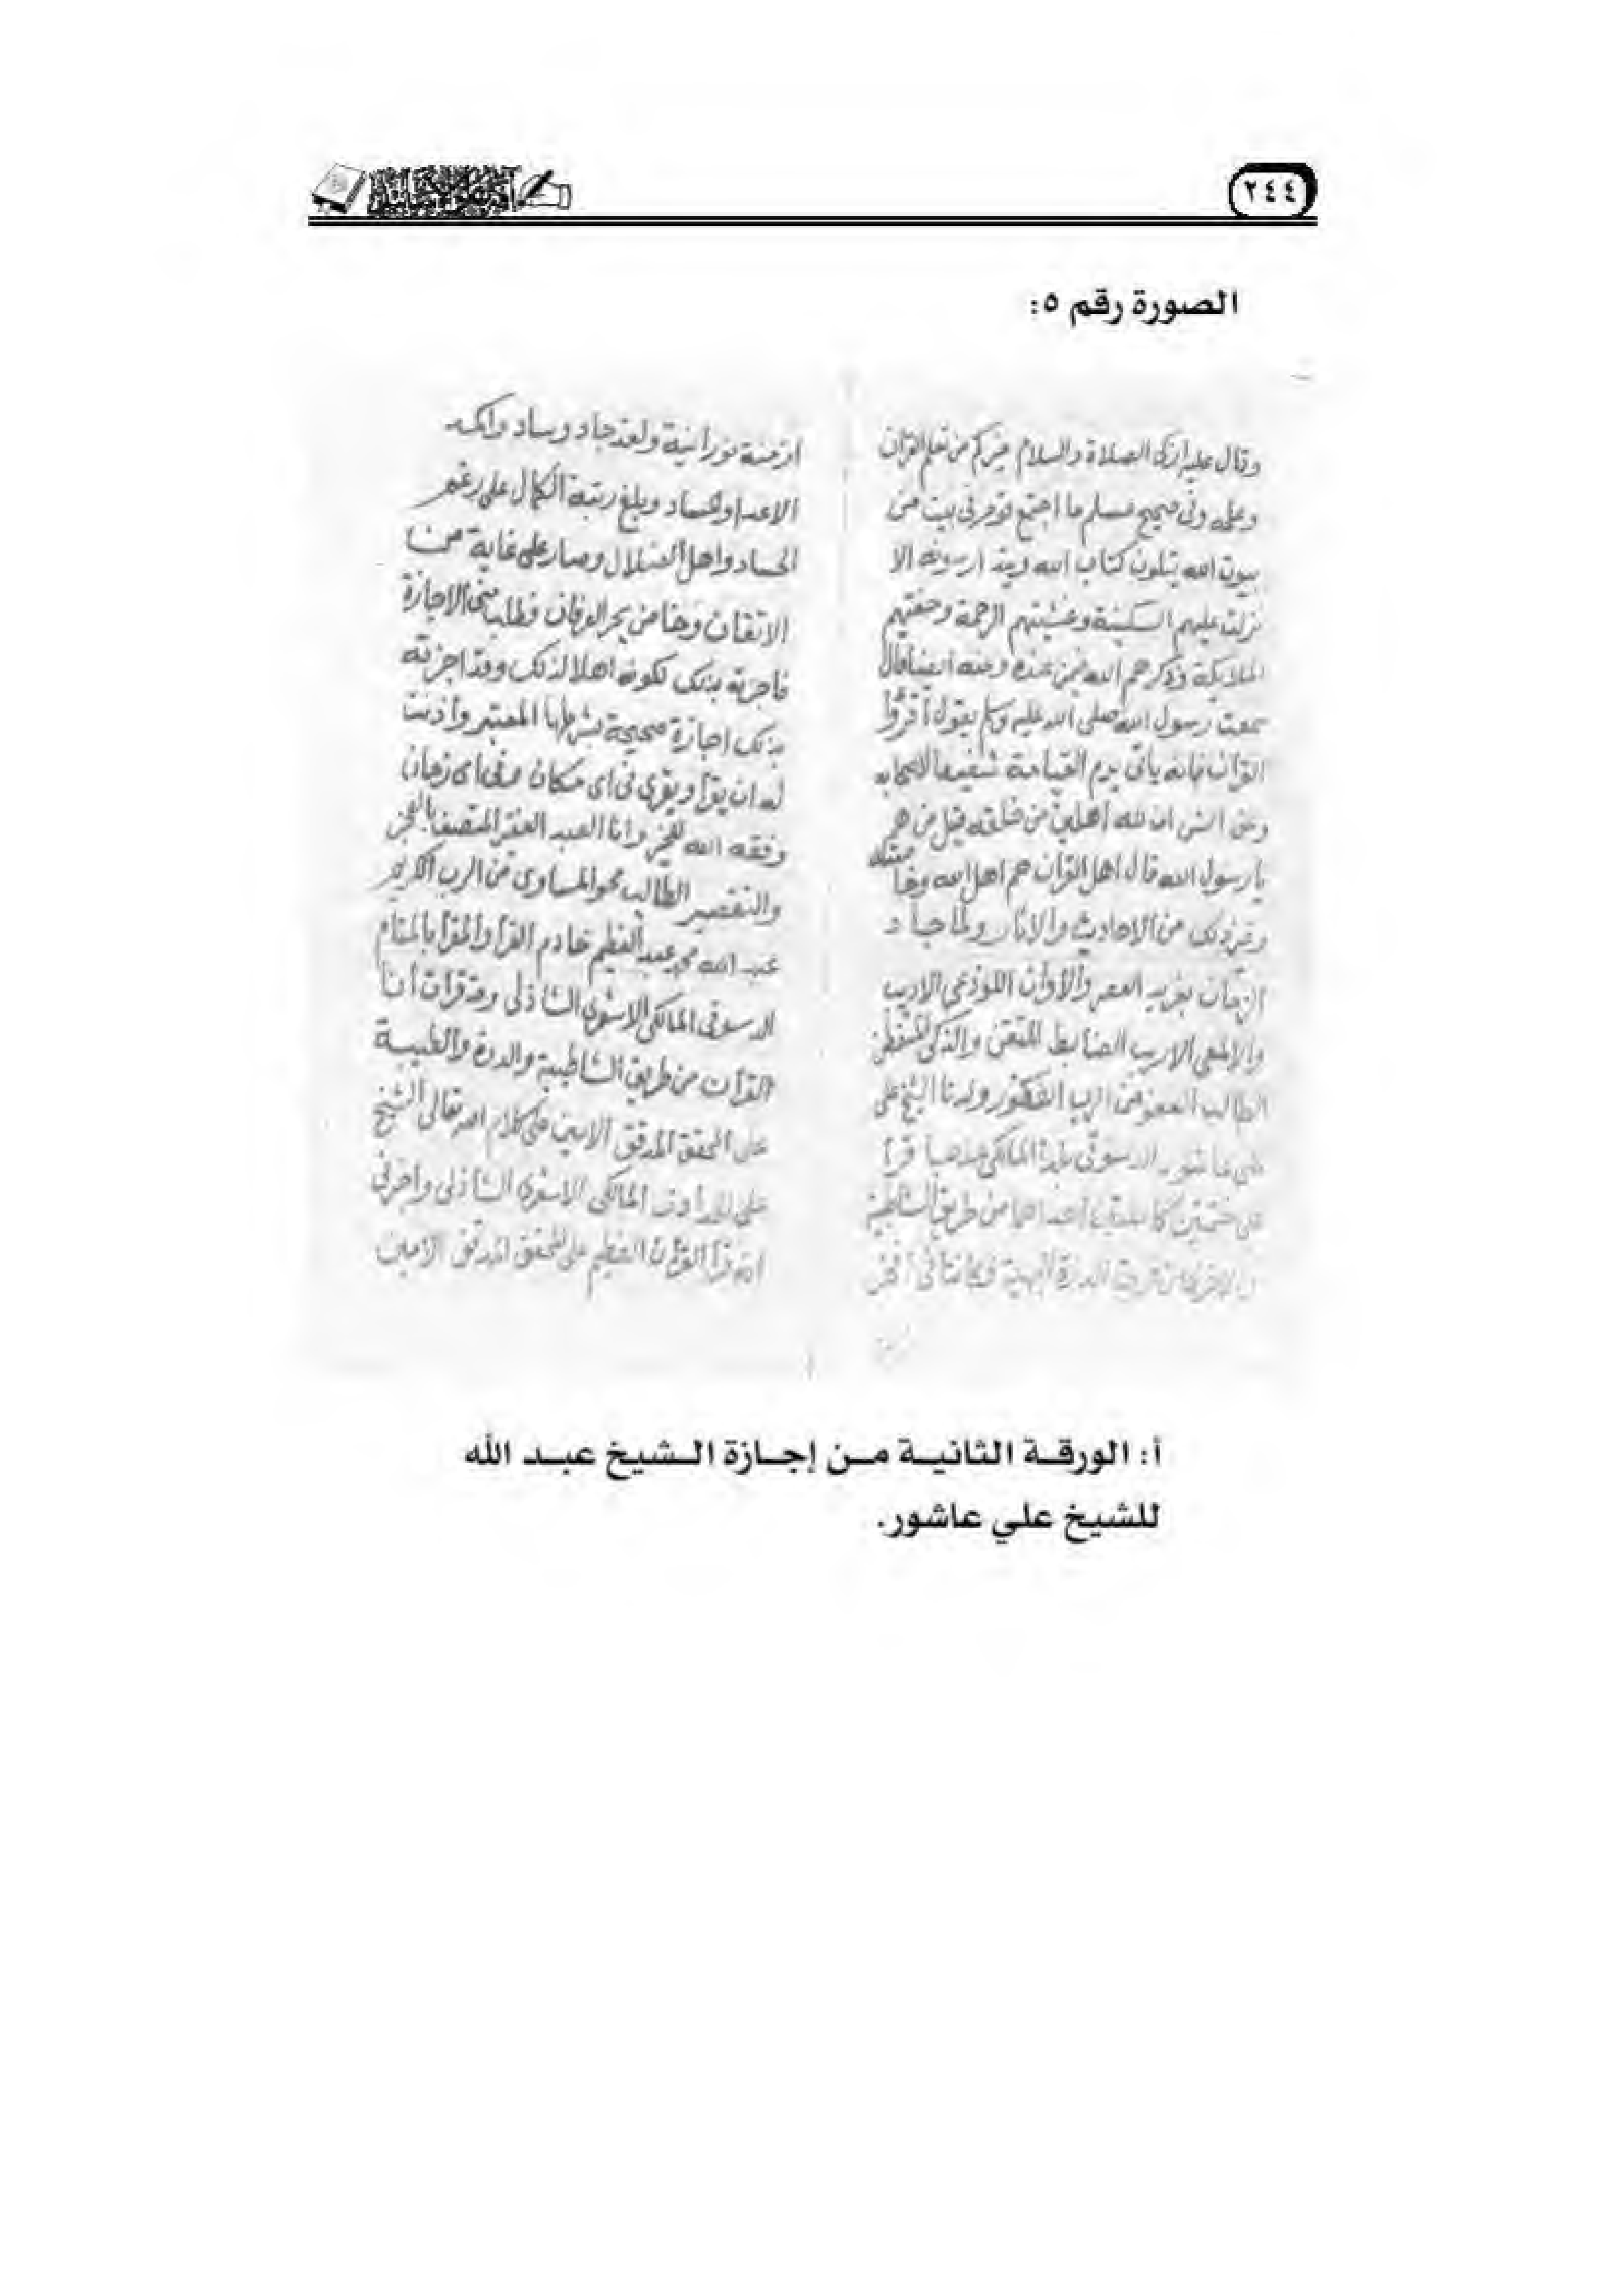 ٢٤٤
الصورة رقم ٥:
وقال عليه ازكى الصلاة والسلام خيركم من تعلم القران
وعلمه وفى صحيح مسلم ما اجتمع قوم فى بيت من
بيوت الله يتلون كتاب الله ويتدارسونه الا
نزلت عليهم السكينة وغشيتهم الرحمة وحفتهم
الملايكة وذكرهم الله فيمن عنده وعنه ايضا قال
سمعت رسول الله صلى الله عليه وسلم يقول أقرؤا
القران فانه ياتى يوم القيامة شفيعا لاصحابه
وعن انس ان لله أهلين من خلقه قيل من هم
يا رسول الله قال اهل القران هم اهل الله وخاصته
وغير ذلك من الاحاديث والاثار ولما جاد
الزمان بفريد العصر والأوان اللوذعى الاديب
والالمعى الاريب الضابط المتقن والذكى المتفطن
الطالب العفو من الرب الغفور ولدنا الشيخ على
عاشور الدسوقى بلدا المالكى مذهبا قرأ
على ختمتين كاملتين احداهما من طريق الشاطبية
والاخرى من طريق الدرة البهية وكانتا فى أفخر
ازمنة نورانية ولقد جاد وساد واكمد
الاعدا والحساد وبلغ رتبة الكمال على رغم
الحساد واهل الضلال وصار على غاية من
الاتقان وخاض بحر العرفان وطلب منى الاجازة
فاجزته بذلك لكونه اهلا لذلك وقد اجزته
بذلك اجازة صحيحة بشرطها المعتبر وأذنت
له ان يقرأ ويقرى فى اى مكان وفى اى زمان
وفقه الله للخير وانا العبد الفقير المتصف بالعجز
والتقصير الطالب محو المساوى من الرب الكريم
عبد الله محمد عبد العظيم خادم القرأ والمقرأ بالمقام
الدسوقى المالكى الاشعرى الشاذلى وقد قرات أنا
القرأن من طريق الشاطبية والدرة والطيبة
على المحقق المدقق الامين على كلام الله تعالى الشيخ
على المالكى الاشعرى الشاذلى واخبرنى
انه قرأ القرأن العظيم على المحقق المدقق الامين
أ: الورقة الثانية من إجازة الشيخ عبد الله
للشيخ علي عاشور.